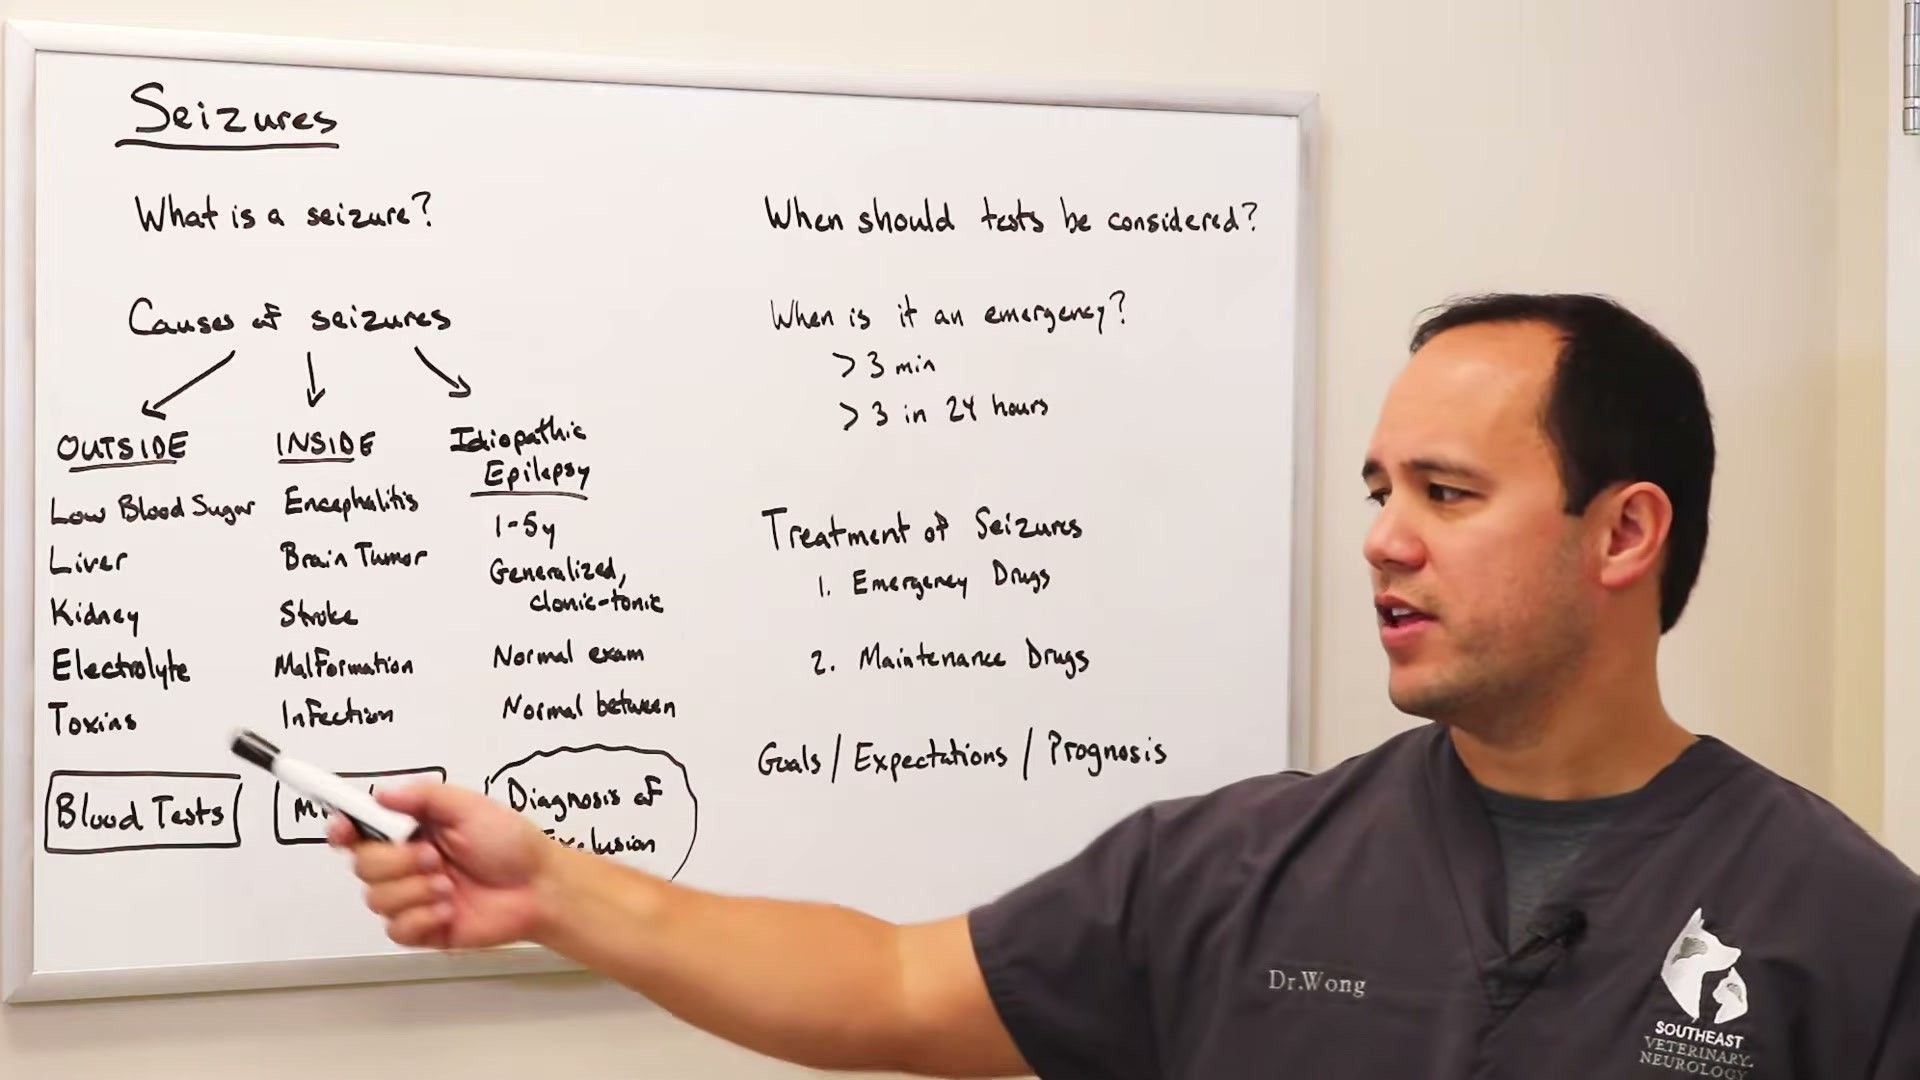 Seizures
What is a seizure?
Causes of seizures
OUTSIDE
Low Blood Sugar
Liver
Kidney
Electrolyte
Toxins
Blood Tests
INSIDE
Encephalitis
Brain Tumor
Stroke
Malformation
Infection
Idiopathic
Epilepsy
1-5y
Generalized,
clonic-tonic
Normal exam
Normal between
Diagnosis of
When should tests be considered?
When is it an emergency?
> 3 min
> 3 in 24 hours
Treatment of Seizures
1. Emergency Drugs
2. Maintenance Drugs
Goals / Expectations / Prognosis
Dr.Wong
SOUTHEAST
VETERINARY
NEUROLOGY